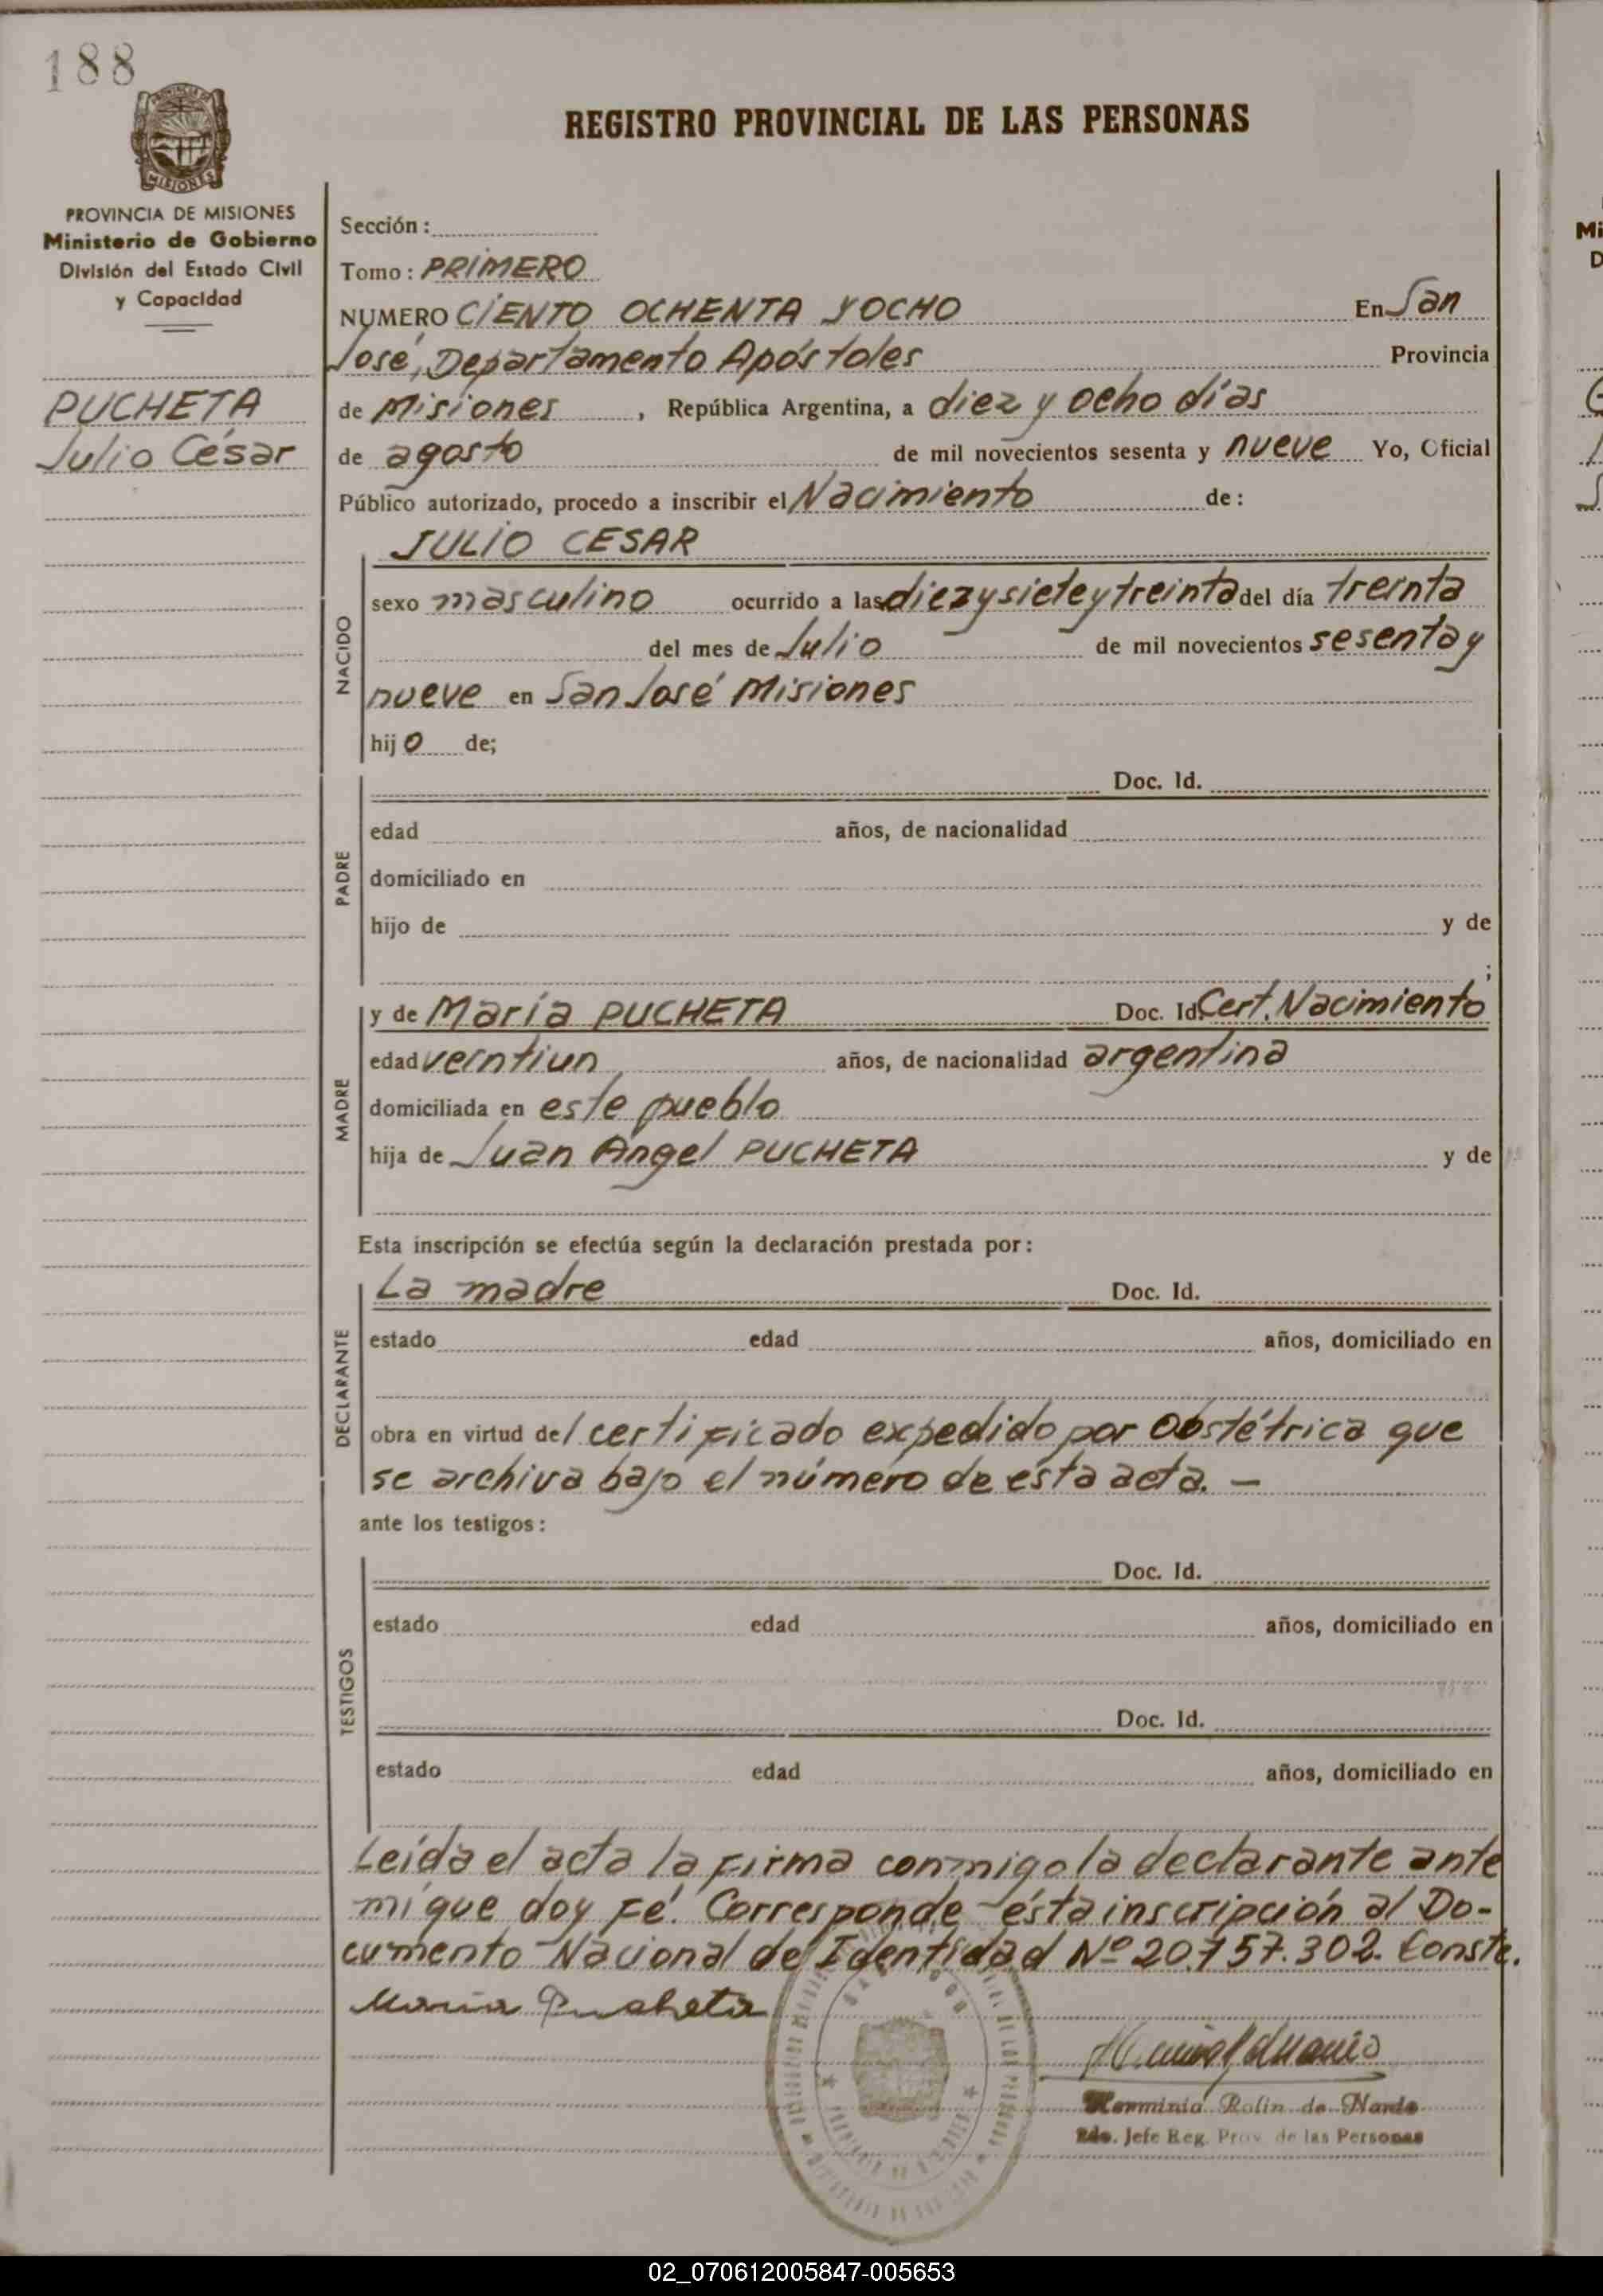 188
PROVINCIA DE MISIONES
REGISTRO PROVINCIAL DE LAS PERSONAS
PROVINCIA DE MISIONES
Ministerio de Gobierno
División del Estado Civil
y Capacidad
PUCHETA
Julio César
Sección:
Tomo: PRIMERO
NUMERO CIENTO OCHENTA Y OCHO En San
José, Departamento Apóstoles Provincia
de Misiones, República Argentina, a diez y ocho días
de agosto de mil novecientos sesenta y nueve Yo, Oficial
Público autorizado, procedo a inscribir el Nacimiento de:
JULIO CESAR
NACIDO
sexo masculino ocurrido a las diez y siete y treinta del día treinta
del mes de Julio de mil novecientos sesenta y
nueve en San José Misiones
hijo de;
PADRE
Doc. Id.
edad años, de nacionalidad
domiciliado en
hijo de y de
;
MADRE
y de María PUCHETA Doc. Id Cert. Nacimiento
edad veintiun años, de nacionalidad argentina
domiciliada en este pueblo
hija de Juan Angel PUCHETA y de
Esta inscripción se efectúa según la declaración prestada por:
DECLARANTE
La madre Doc. Id.
estado edad años, domiciliado en
obra en virtud del certificado expedido por Obstétrica que
se archiva bajo el número de esta acta. —
ante los testigos:
TESTIGOS
Doc. Id.
estado edad años, domiciliado en
Doc. Id.
estado edad años, domiciliado en
Leída el acta la firma conmigo la declarante ante
mí que doy fé. Corresponde ésta inscripción al Do-
cumento Nacional de Identidad Nº 20.757.302. Conste.
María Pucheta
Herminia Rolin de Nardo
2do. Jefe Reg. Prov. de las Personas
Mi
D
02_070612005847-005653